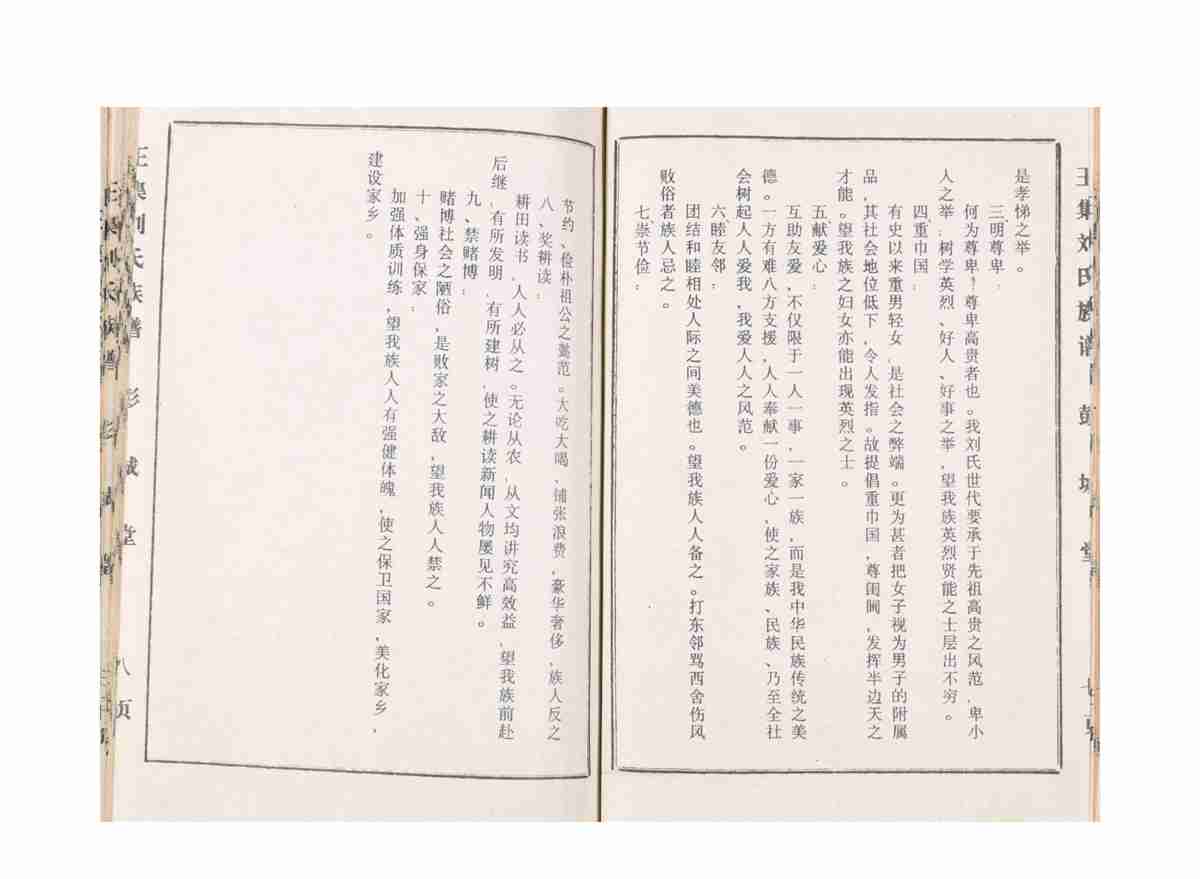 王集刘氏族谱 彭城堂
是孝悌之举。
三、明尊卑：
何为尊卑？尊卑高贵者也。我刘氏世代要承于先祖高贵之风范，卑小
人之举；树学英烈、好人、好事之举，望我族英烈贤能之士层出不穷。
四、重巾国：
有史以来重男轻女，是社会之弊端。更为甚者把女子视为男子的附属
品，其社会地位低下，令人发指。故提倡重巾国，尊闺阃，发挥半边天之
才能。望我族之妇女亦能出现英烈之士。
五、献爱心：
互助友爱，不仅限于一人一事，一家一族，而是我中华民族传统之美
德。一方有难八方支援，人人奉献一份爱心，使之家族、民族、乃至全社
会树起人人爱我，我爱人人之风范。
六、睦友邻：
团结和睦相处人际之间美德也。望我族人人备之。打东邻骂西舍伤风
败俗者族人忌之。
七、崇节俭：
节约、俭朴祖公之懿范。大吃大喝、铺张浪费，豪华奢侈，族人反之
八、奖耕读：
耕田读书，人人必从之。无论从农，从文均讲究高效益，望我族前赴
后继，有所发明，有所建树，使之耕读新闻人物屡见不鲜。
九、禁赌博：
赌博社会之陋俗，是败家之大敌，望我族人人禁之。
十、强身保家：
加强体质训练，望我族人人有强健体魄，使之保卫国家，美化家乡，
建设家乡。
王集刘氏族谱 彭城堂 八页